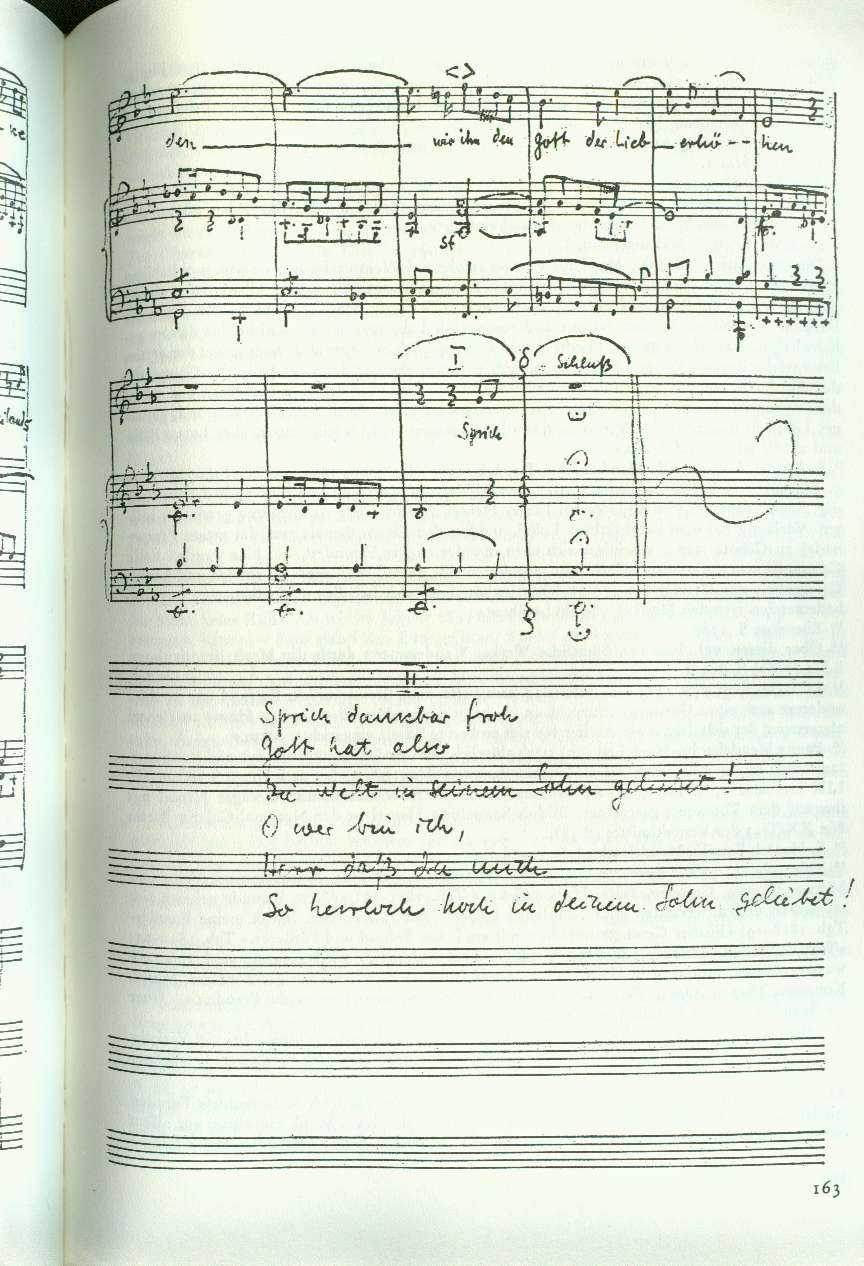 den wir ihn den Gott der Lieb erhö-- hen
I Schluß
Sprich
II
Sprich dannbar froh
Gott hat also
Die Welt in seinem Sohn geliebet!
O wer bin ich,
Herr daß du mich
So herrloch hoch in deinem Sohn geliebet!
163